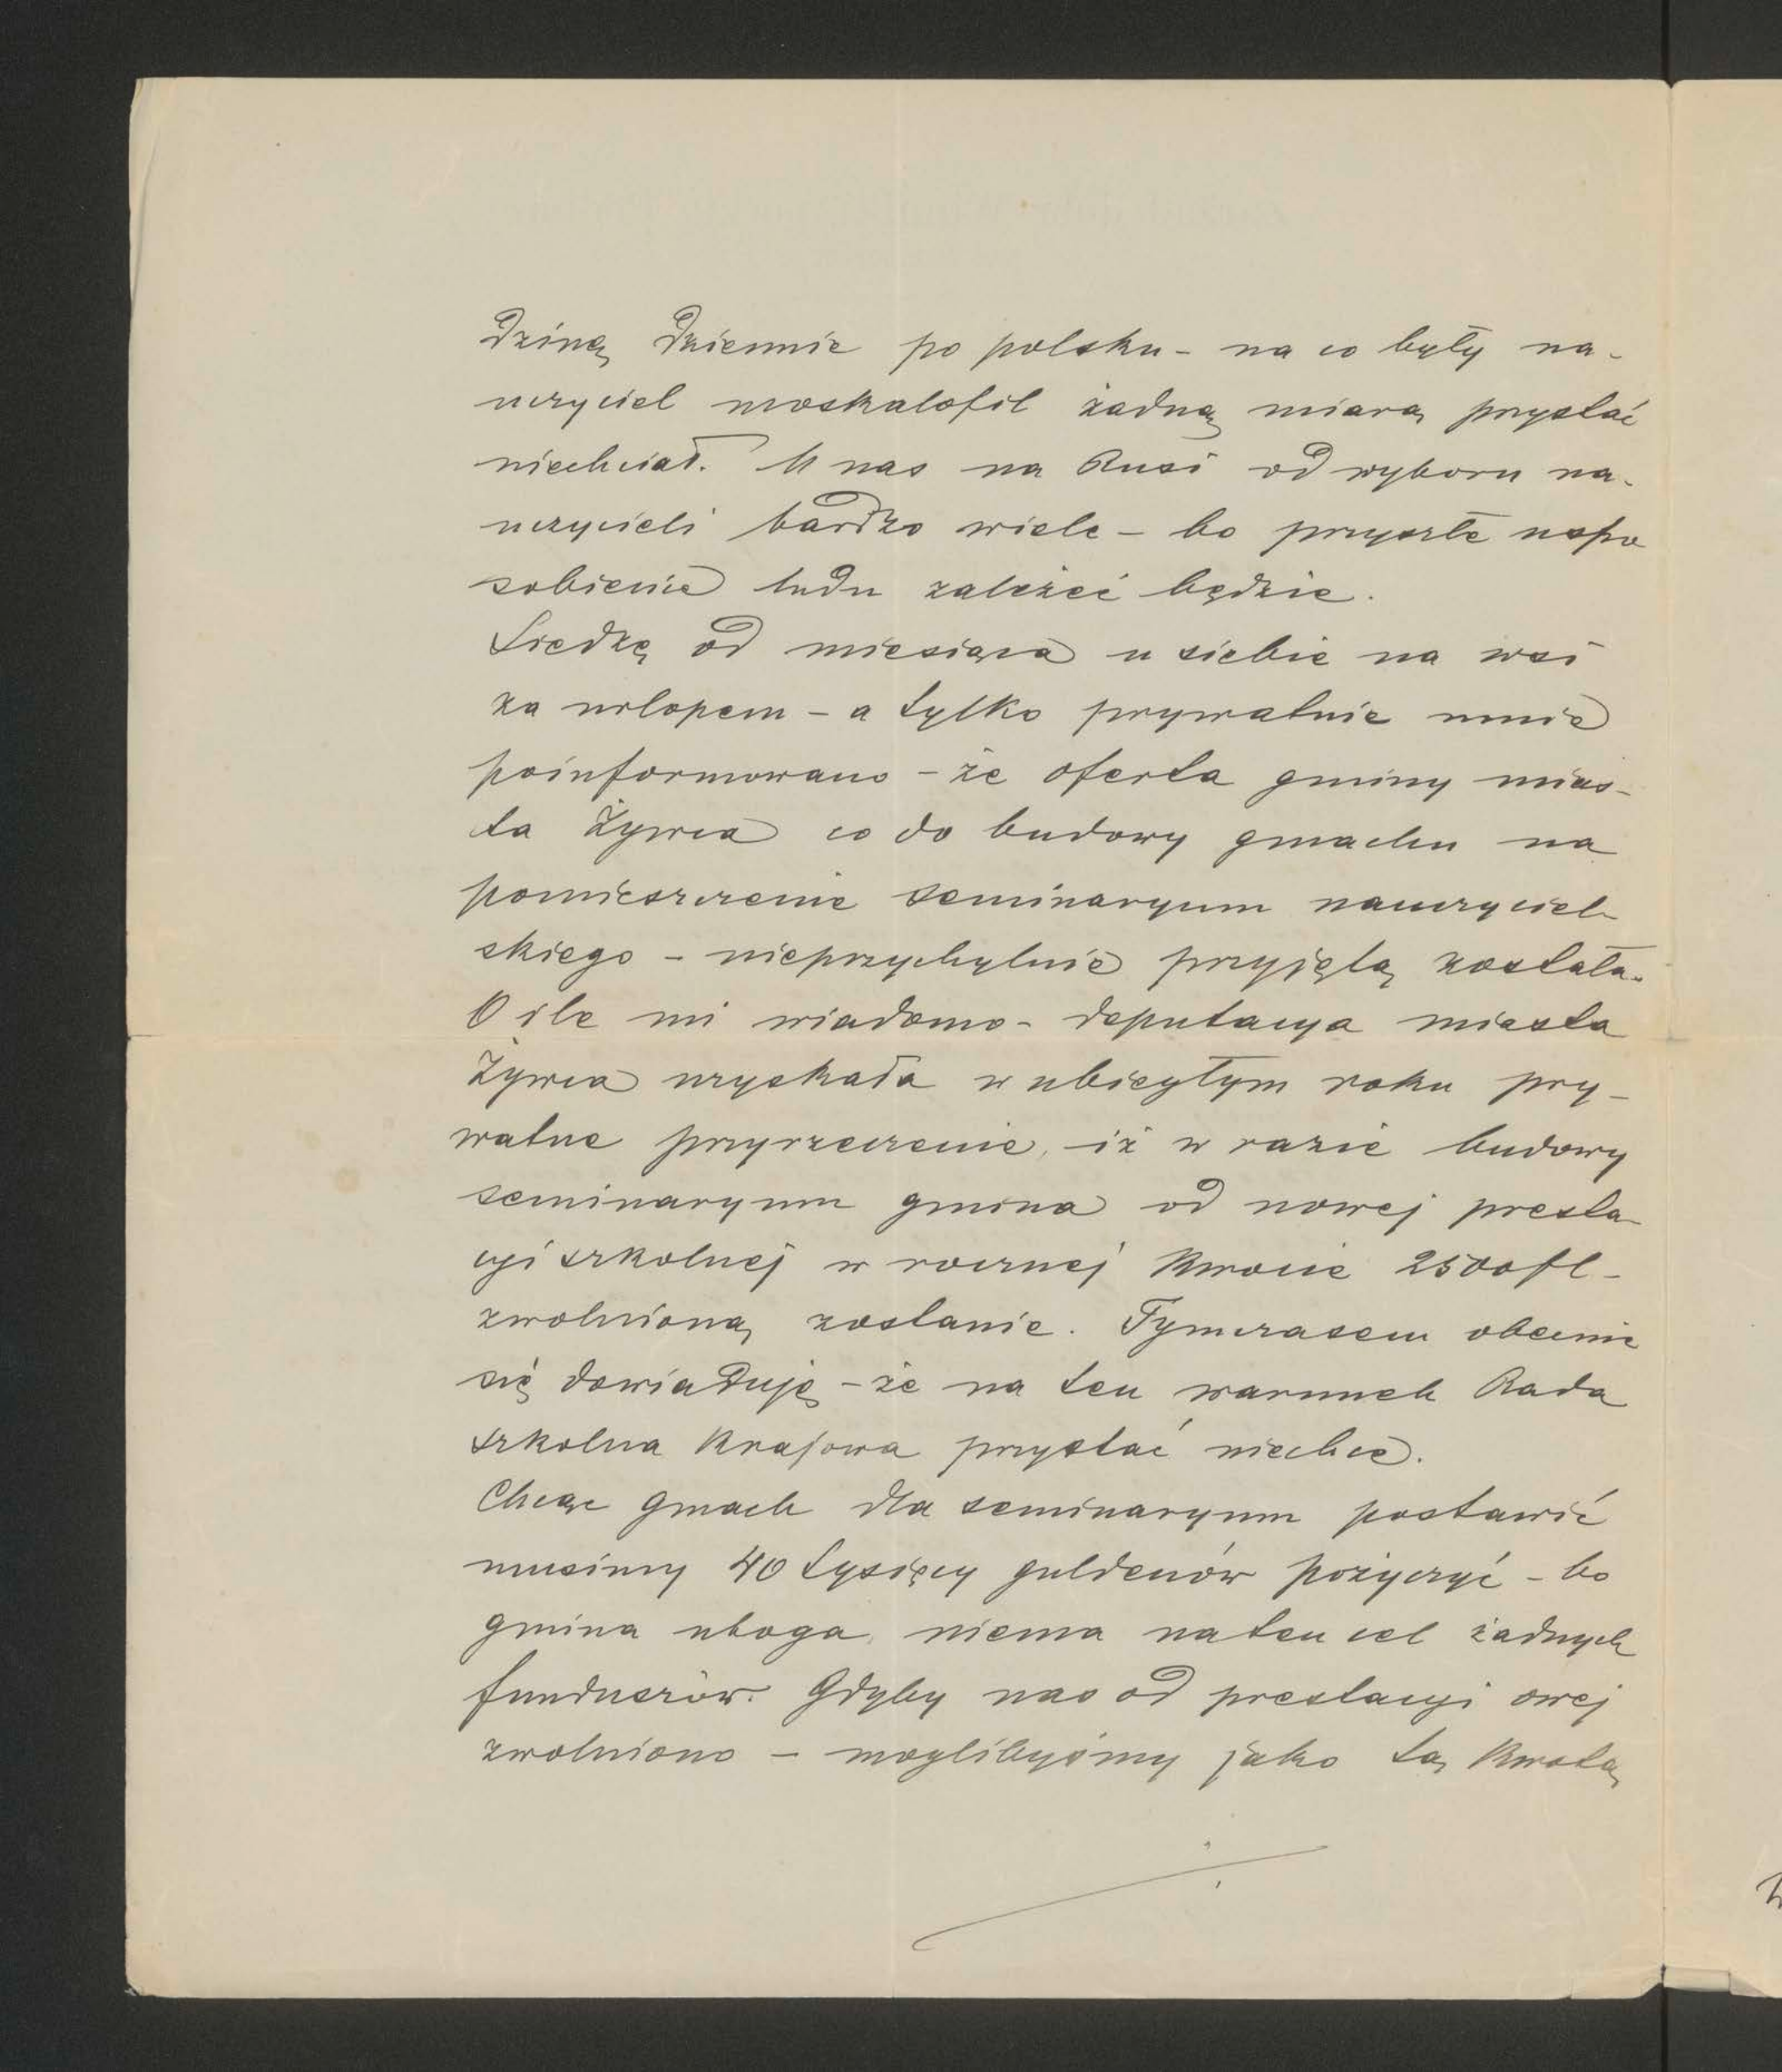 dziną dziennie po polsku - na co były na-
uczyciel moskalofil żadną miarą przystać
niechciał. U nas na Rusi od wyboru na-
uczycieli bardzo wiele - bo przyszłe uspo
sobienie ludu zależeć będzie.
Siedzę od miesiąca u siebie na wsi
za urlopem - a tylko prywatnie mnie
poinformowano - że oferta gminy mias-
ta Żywca co do budowy gmachu na
pomieszczenie seminaryum nauczyciel-
skiego - nieprzychylnie przyjętą została.
O ile mi wiadomo - deputacya miasta
Żywca uzyskała w ubiegłym roku pry-
watne przyrzeczenie, iż w razie budowy
seminaryum gmina od nowej presta-
cyi szkolnej w rocznej kwocie 2500 fl -
zwolnioną zostanie. Tymczasem obecnie
się dowiaduję - że na ten warunek Rada
szkolna Krajowa przystać niechce.
Chcąc gmach dla seminaryum postawić
musimy 40 tysięcy guldenów pożyczyć - bo
gmina uboga, niema na ten cel żadnych
funduszów. Gdyby nas od prestacyi owej
zwolniono - moglibyśmy jako tą kwotą